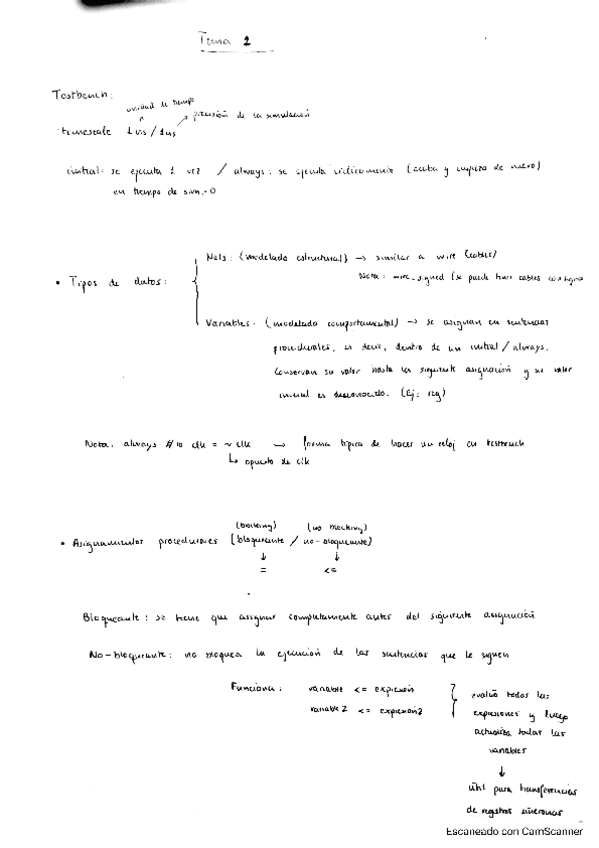 Tema 2
Testbench:
unidad de tiempo
precisión de la simulación
timescale 1ns / 1ns
initial: se ejecuta 1 vez / always: se ejecuta cíclicamente (acaba y empieza de nuevo)
en tiempo de sim.=0
Nets: (modelado estructural) → similar a wire (cables)
Nota: wire_signed (se puede hacer cables con signo
• Tipos de datos:
Variables: (modelado comportamental) → se asignan en sentencias
procedurales, es decir, dentro de un initial/always.
Conservan su valor hasta la siguiente asignación y su valor
inicial es desconocido. (Ej: reg)
Nota: always #10 clk = ~clk → forma típica de hacer un reloj en testbench
↳ opuesto de clk
(blocking) (no blocking)
• Asignaciones procedurales (bloqueante / no-bloqueante)
↓ ↓
= <=
Bloqueante: se tiene que asignar completamente antes del siguiente asignación
No-bloqueante: no bloquea la ejecución de las sentencias que le siguen
Funciona: variable <= expresión
variable2 <= expresión2
evalúa todas las
expresiones y luego
actualiza todas las
variables
↓
útil para transferencias
de registros síncronas
Escaneado con CamScanner